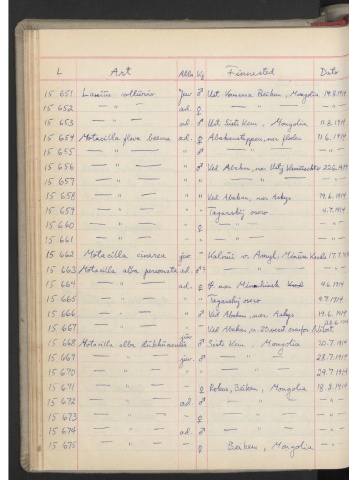 L Art Alder Kj. Finnested Dato
15 651 Lanius collurio juv ♂ Ust Kamsara Beikem, Mongolia 14.8.1914
15 652 — " — ad. ♀ — " — — " —
15 653 — " — ad. ♂ Sisti Kem, Mongolia 11.8.1914
15 654 Motacilla flava beema ad. ♀ Abakansteppen, nær floden 11.6.1914
15 655 — " — ♂ — " — — " —
15 656 — " — ♂ Ved Abakan, nær 22.6.1914
15 657 — " — " — " — — " —
15 658 — " — " Ved Abakan, nær Askys 19.6.1914
15 659 — " — " Tagarskij osero 4.7.1914
15 660 — " — ♀ — " — — " —
15 661 — " — — " — — " —
15 662 Motacilla cinerea juv. Kalná v. Amyl, 17.7.1914
15 663 Motacilla alba personata ad. ♂ — " — — " —
15 664 — " — ad. ♀ nær Minusinsk 9.6.1914
15 665 — " — " Tagarskij osero 9.7.1914
15 666 — " — ♂ Ved Abakan, nær Askys 19.6.1914
15 667 — " — " Ved Abakan ca 20 verst ovenfor 22.6.1914
15 668 Motacilla alba juv ♂ Sisti Kem, Mongolia 30.7.1914
15 669 — " — juv. ♂ — " — 28.7.1914
15 670 — " — " — " — 29.7.1914
15 671 — " — " ♀ Beikem, Mongolia 18.8.1914
15 672 — " — ad. ♂ — " — — " —
15 673 — " — — ♀ — " — — " —
15 674 — " — ad. ♂ — " — — " —
15 675 — " — — ♀ Beikem, Mongolia — " —